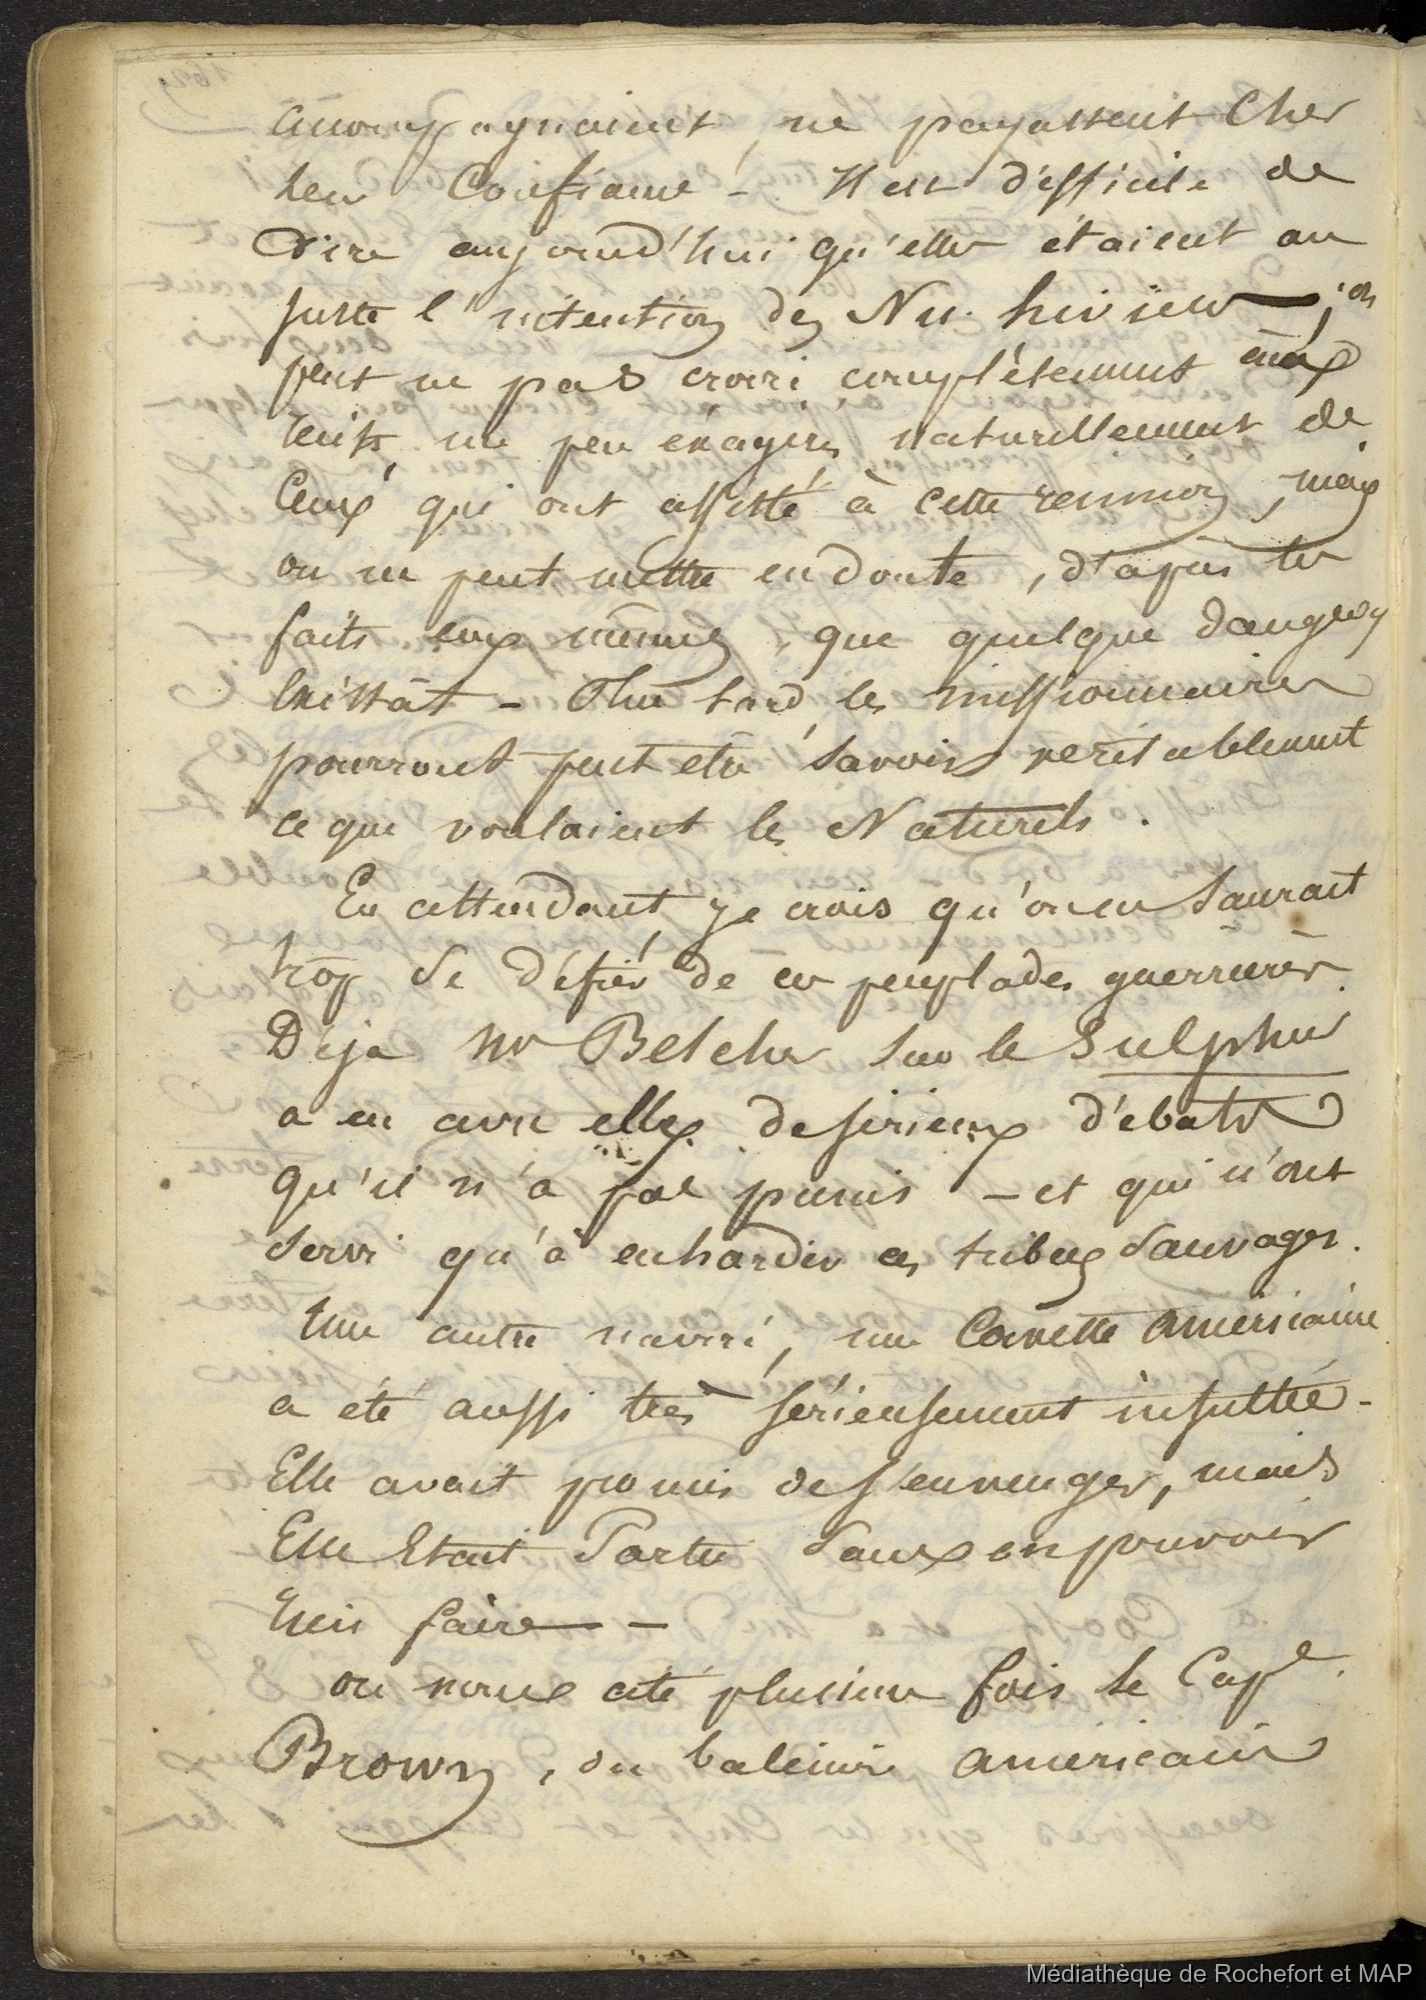 accompagnaient, ne payassent cher
leur Confiance - Il est d'ifficile de
Dire aujourd'hui qu'elles étaient au
juste l'intention des Nu-hiviens ; on
peut ne pas croire complètement aux
recits, un peu éxagérés naturellement de
Ceux qui ont assisté à cette reunion, mais
on ne peut mettre en doute, d'après les
faits eux mêmes, que quelque danger n'y
éxistât - Plus tard, les missionnaires
pourront peut etre savoir veritablement
ce que voulaient les Naturels.
En attendant, je crois qu'on en saurait
trop se d'éfier de ces peuplades guerrières.
Dejà Mr Belcher sur le Sulphur
a eu avec elles de serieux d'ebats
qu'il n'a pas punis - et qui n'ont
servi qu'à enhardir ces tribus Sauvages.
Une autre navire, une Corvette americaine
a été aussi très sérieusement insultée -
Elle avait promis de s'en venger, mais
Elle Etait Partie sans en pouvoir
rien faire - -
on nous cite plusieurs fois le Cape
Brown, du baleinier americain
Médiathèque de Rochefort et MAP